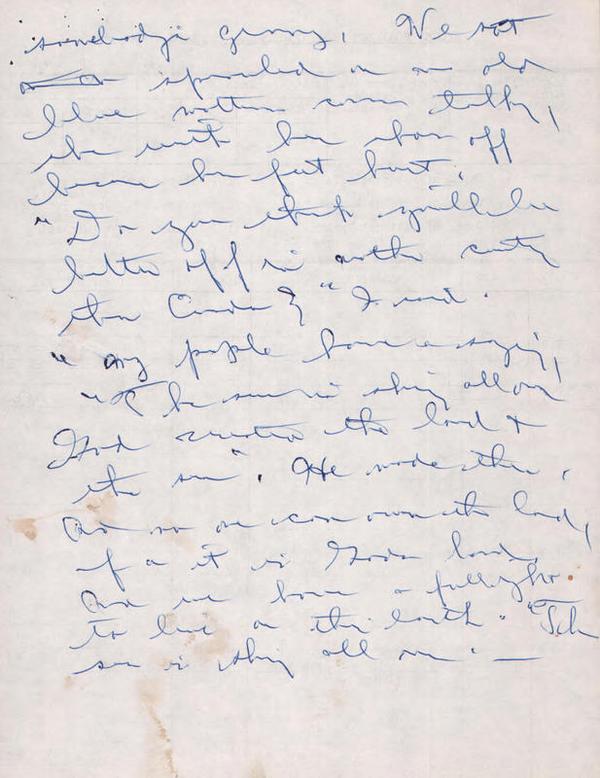 somebody's granny. We sat
sprawled on an old
blue mattress talking,
she with her shoes off
because her feet hurt.
"Do you think you'll be
better off in another country
than Canada?" I said.
"My people have a saying,
"The sun is shining all over
God created the land &
the sun". He made them.
And no one can own the land,
for it is Gods land.
And we have a full right
to live on this earth. "The
sun is shining all over. —